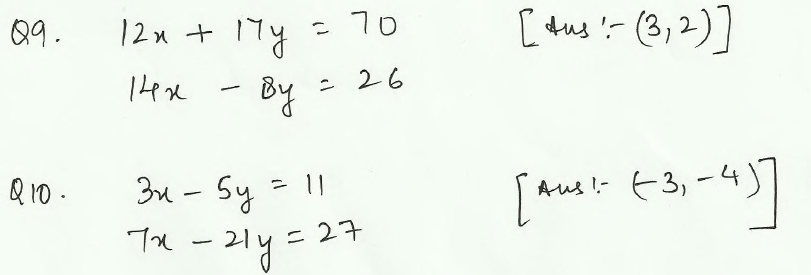 Q9. 12x + 17y = 70 [Ans :- (3,2)]
14x - 8y = 26
Q10. 3x - 5y = 11 [Ans :- (-3, -4)]
7x - 21y = 27